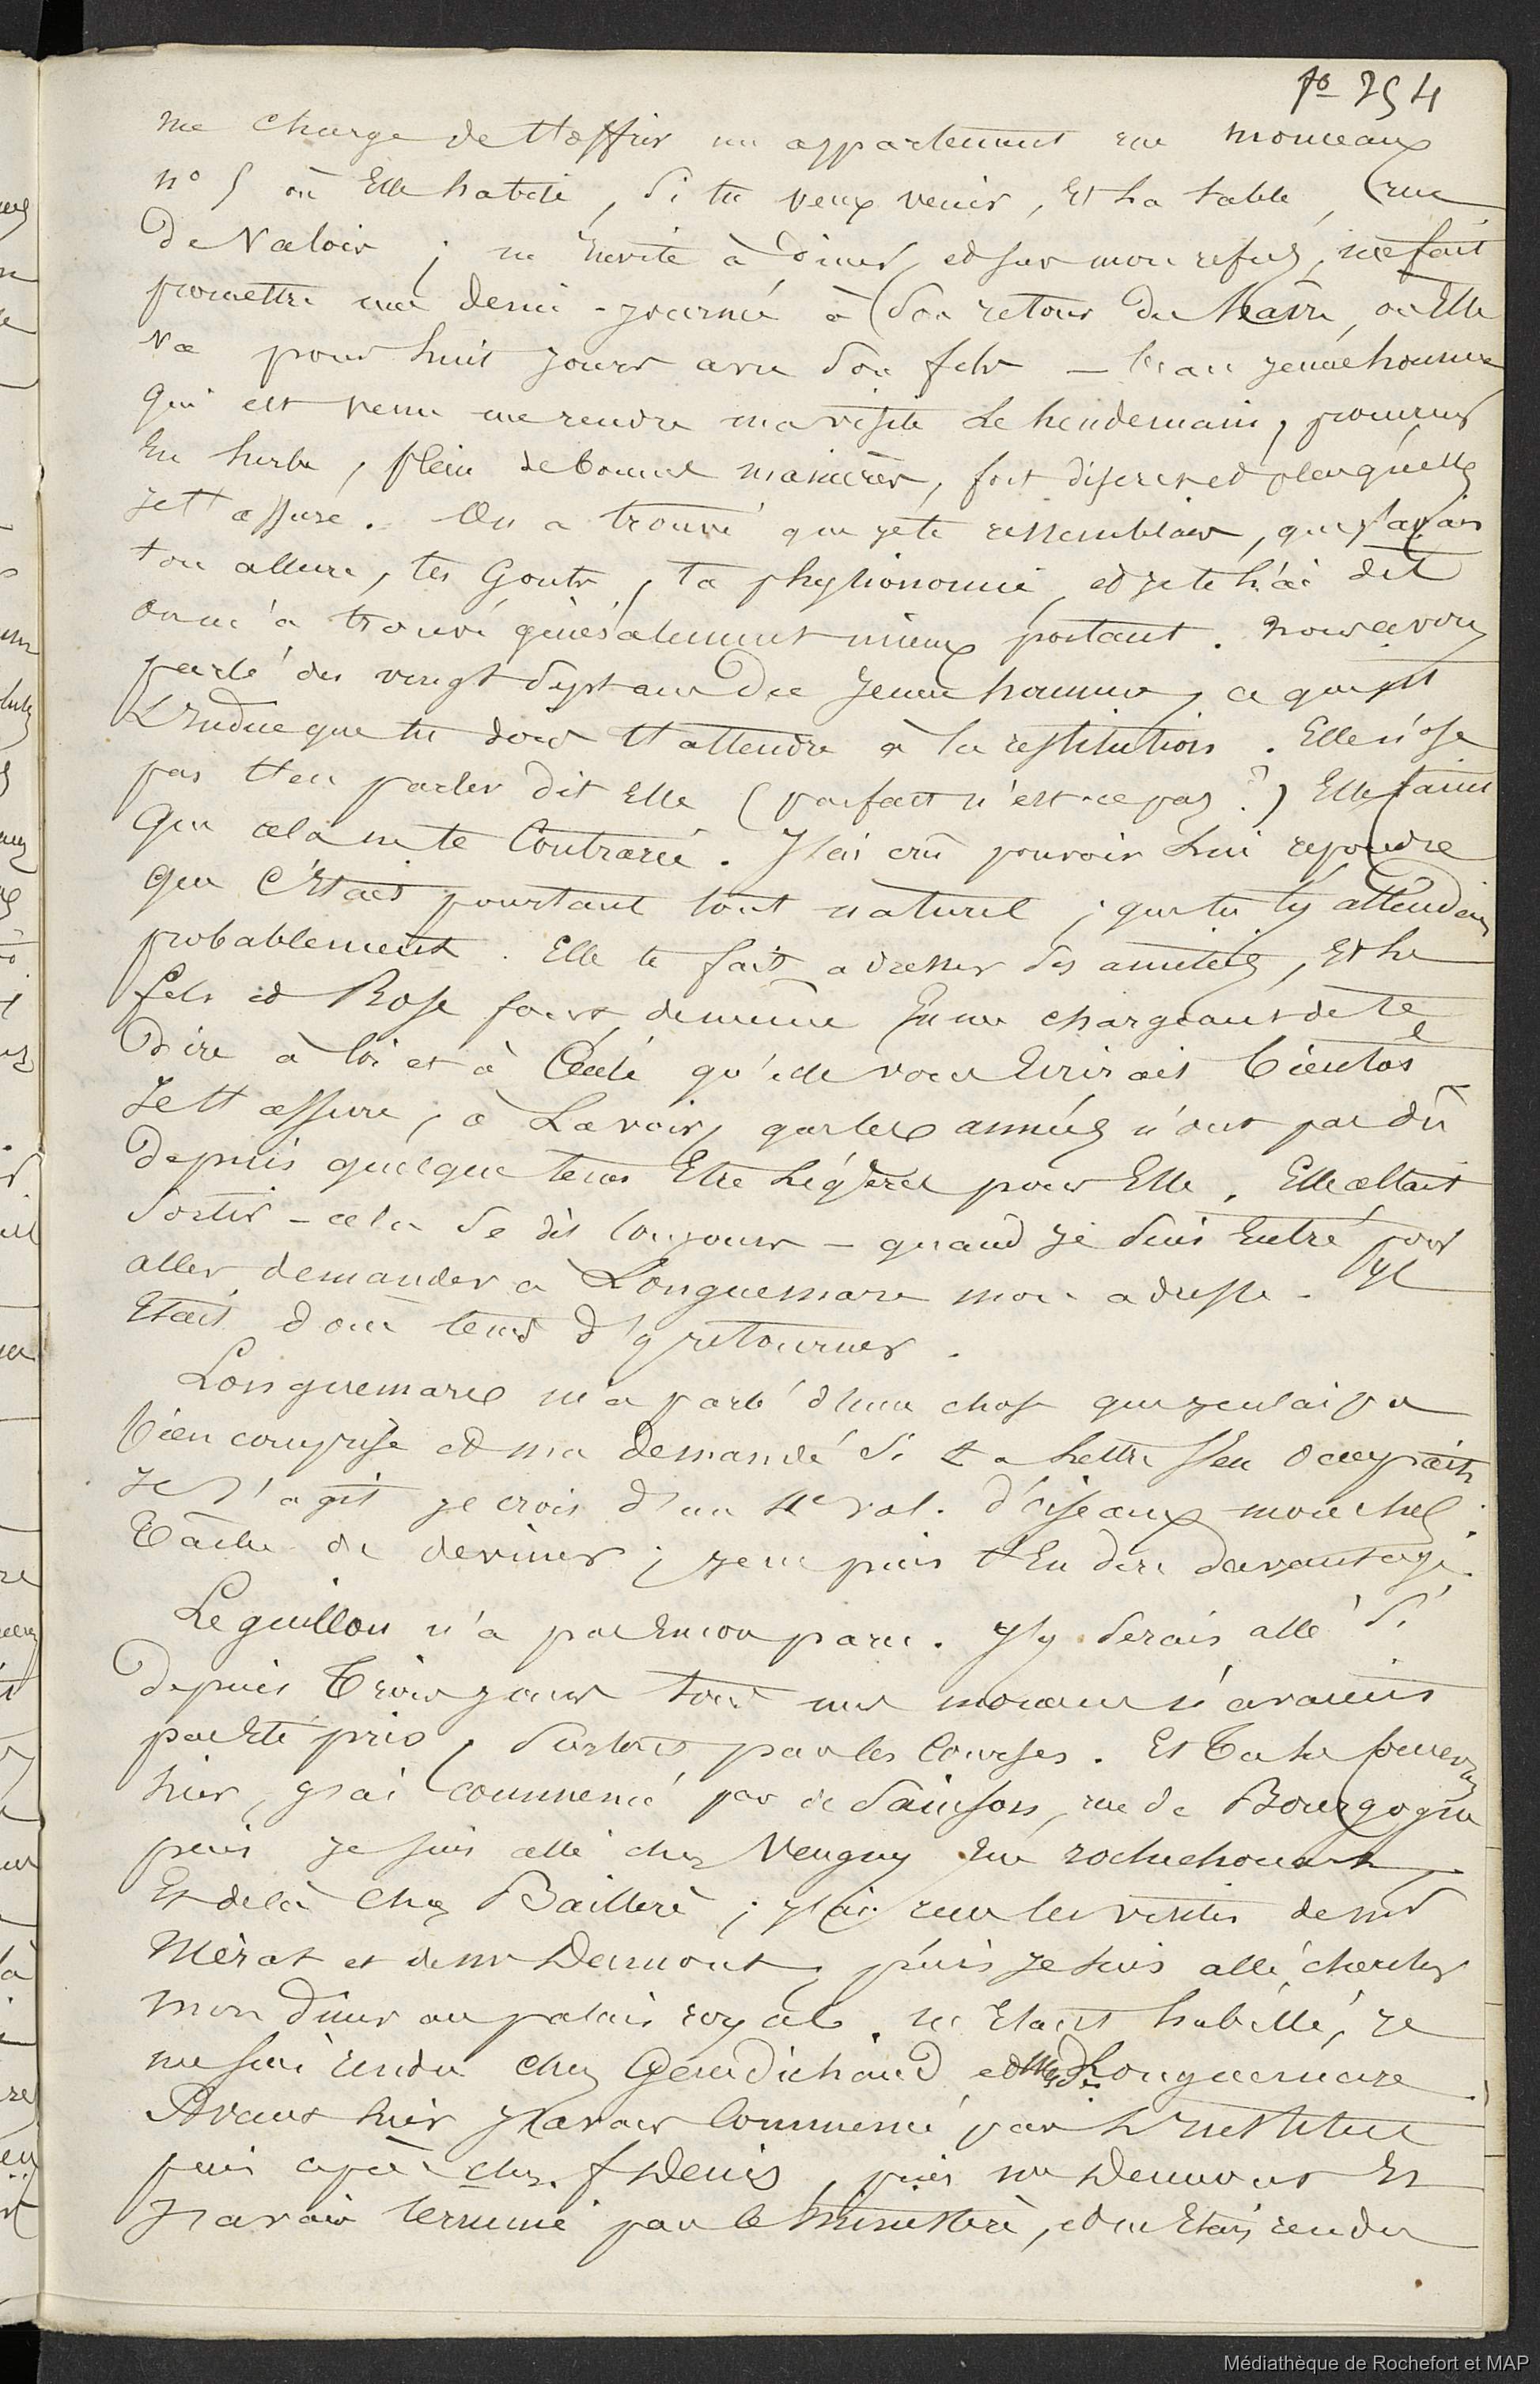 fo 254
me charge de t'offrir un appartement rue monceaux
n° 5 où Elle habite, Si tu veux venir, Et sa table, (rue
De Valois ; m'invite à Diner, et sur mon refus, me fait
promettre une demi-journée à Son retour du havre, où Elle
Va pour huit jours avec Son fils — beau jeune homme
Qui est venu me rendre ma visite Le Lendemain,
En herbe, plein de bonnes manières, fort discret et
Je tt assure. On a trouvé que je te ressemblais, que j'avais
ton allure, tes Gouts, ta physionomie, et je te l'ai dit
on m'a trouvé génésalement mieux portant. nous avons
parlé des vingt Sept ans Du Jeune homme, ce qui
que tu dois tt attendre à la restitution. Elle n'ose
pas tten parler Dit Elle (parfait n'est-ce pas ?) Elle craint
Que cela ne te Contrarie. J'ai crû pouvoir Lui repondre
Que C'Etait pourtant tout naturel ; que tu t'y attendais
probablement. Elle te fait adresser Ses amitiés, Et Le
fils et Rose font de même En me chargeant de te
Dire à toi et à Cécile qu'elle vous Ecrirait bientot
Je tt assure, à La voir, que les années n'ont pas dû
Depuis quelque tems Etre Légères pour Elle. Elle allait
Sortir — cela Se dit toujours — quand je Suis Entré pour
aller demander à Longuemare mon adresse. Jl
Etait donc tems d'y retourner.
Longuemare m'a parlé d'une chose que je n'ai pas
bien comprise et m'a demandé Si ta Lettre S'en occupait.
Jl S'agit je crois d'un 4e vol. d'oiseaux mouches.
Tâche de deviner ; je ne puis t'En dire davantage.
Leguillou n'a pas Encore paru. J'y Serais allé Si
Depuis Trois jours tous mes momens n'avaient
pas Eté pris, Surtout par les Courses. Et
hier, j'ai commencé par de Sainson, rue de Bourgogne
puis je suis allé chez Veugny rue rochechouart
Et de là chez Bailleré ; j'ai reçu les visites de mr
Mérat et de mr Dumont, puis je suis allé chercher
mon diner au palais royal. m'Etant habillé, je
me suis rendu chez Gaudichaud et Longuemare.
Avant hier j'avais Commencé par L'Institut
puis après chez f Denis, puis mr Dumont Et
J'avais terminé par le Ministère, et m'Etais rendu
Médiathèque de Rochefort et MAP